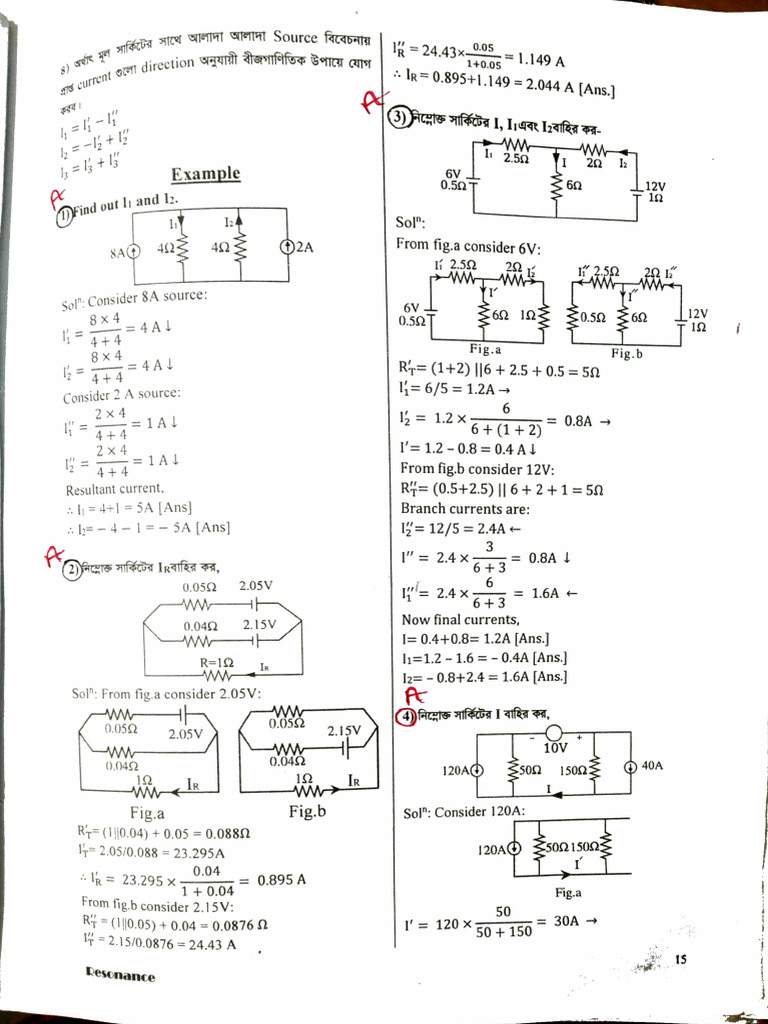 ৪) অর্থাৎ মূল সার্কিটের সাথে আলাদা আলাদা Source বিবেচনায়
প্রাপ্ত current গুলো direction অনুযায়ী বীজগাণিতিক উপায়ে যোগ
করব।
I₁ = I₁′ − I₁″
I₂ = −I₂′ + I₂″
I₃ = I₃′ + I₃″
Example
A
1) Find out I₁ and I₂.
8A 4Ω I₁ 4Ω I₂ 2A
Solⁿ: Consider 8A source:
I₁′ = (8 × 4)/(4 + 4) = 4 A ↓
I₂′ = (8 × 4)/(4 + 4) = 4A ↓
Consider 2 A source:
I₁″ = (2 × 4)/(4 + 4) = 1 A ↓
I₂″ = (2 × 4)/(4 + 4) = 1A ↓
Resultant current,
∴ I₁ = 4+1 = 5A [Ans]
∴ I₂= − 4 − 1 = − 5A [Ans]
A
2) নিম্নোক্ত সার্কিটের I_R বাহির কর,
0.05Ω 2.05V
0.04Ω 2.15V
R=1Ω I_R
Solⁿ: From fig.a consider 2.05V:
0.05Ω 2.05V
0.04Ω
1Ω I_R
Fig.a
0.05Ω 2.15V
0.04Ω
1Ω I_R
Fig.b
R_T′= (1||0.04) + 0.05 = 0.088Ω
I_T′= 2.05/0.088 = 23.295A
∴ I_R′ = 23.295 × 0.04/(1 + 0.04) = 0.895 A
From fig.b consider 2.15V:
R_T″ = (1||0.05) + 0.04 = 0.0876 Ω
I_T″ = 2.15/0.0876 = 24.43 A
Resonance
I_R″ = 24.43× 0.05/(1+0.05) = 1.149 A
∴ I_R = 0.895+1.149 = 2.044 A [Ans.]
A
3) নিম্নোক্ত সার্কিটের I, I₁ এবং I₂ বাহির কর-
I₁ 2.5Ω I 2Ω I₂
6V 0.5Ω 6Ω 12V 1Ω
Solⁿ:
From fig.a consider 6V:
I₁′ 2.5Ω 2Ω I₂′
I′
6V 0.5Ω 6Ω 1Ω
Fig.a
I₁″ 2.5Ω 2Ω I₂″
I″
0.5Ω 6Ω 12V 1Ω
Fig.b
R_T′= (1+2) ||6 + 2.5 + 0.5 = 5Ω
I₁′= 6/5 = 1.2A →
I₂′ = 1.2 × 6/(6 + (1 + 2)) = 0.8A →
I′= 1.2 – 0.8 = 0.4 A ↓
From fig.b consider 12V:
R_T″= (0.5+2.5) || 6 + 2 + 1 = 5Ω
Branch currents are:
I₂″= 12/5 = 2.4A ←
I″ = 2.4 × 3/(6 + 3) = 0.8A ↓
I₁″ = 2.4 × 6/(6 + 3) = 1.6A ←
Now final currents,
I= 0.4+0.8= 1.2A [Ans.]
I₁=1.2 – 1.6 = – 0.4A [Ans.]
I₂= – 0.8+2.4 = 1.6A [Ans.]
A
4) নিম্নোক্ত সার্কিটের I বাহির কর,
− +
10V
120A 50Ω 150Ω 40A
I
Solⁿ: Consider 120A:
120A 50Ω 150Ω
I′
Fig.a
I′ = 120 × 50/(50 + 150) = 30A →
15